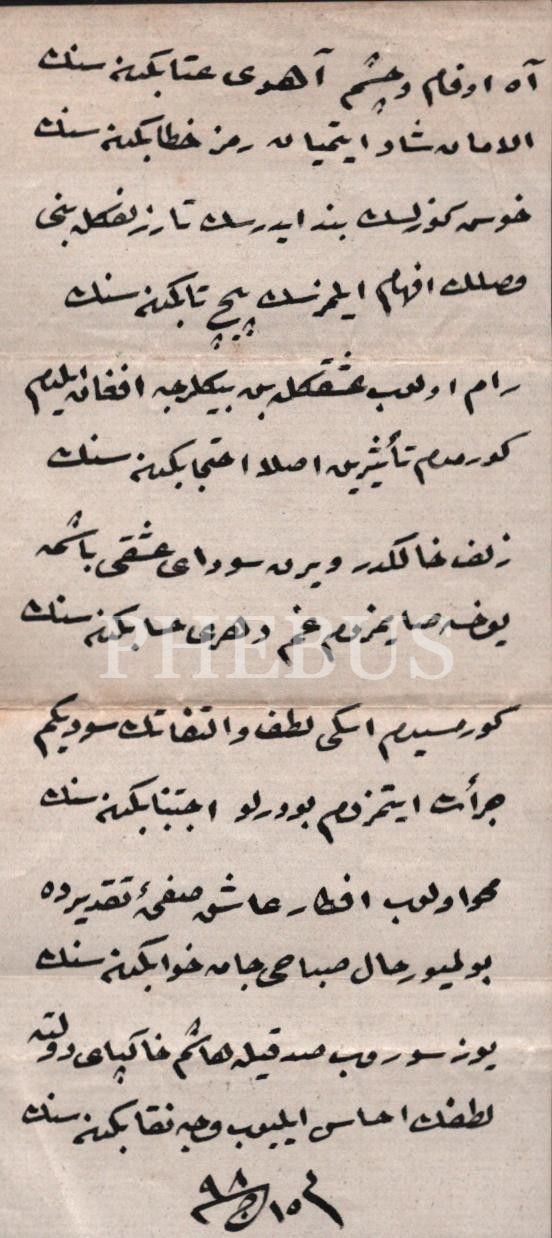 آه اوقام وچشم آهوی عتابكنه سنك
الامان شاد ایتمیان رمز خطابكنه سنك
خوش كوزلسك بند ایدرسك تار زلفكله بنی
وصلك افهام ایلمزسك پیچ تابكنه سنك
رام اولوب عشقكله بن بیكلرجه افغان ایلدم
كورمدم تأثیرین اصلا احتجابكنه سنك
زلف خالكدر ویرن سودای عشقی باشمه
یوخسه صایمزدم غم دهری حسابكنه سنك
كورمسیدم اسكی لطف والتفاتك سودیكم
جرأت ایتمزدم بودرلو اجتنابكنه سنك
محو اولوب افطار عاشق صفحۀ تقدیرده
بولمیور حال صباحی جامه خوابكنه سنك
یوز سوروب صدقیله هاشم خاكپای دولته
لطفك احساس ایلیوب وجه نقابكنه سنك
PHEBUS